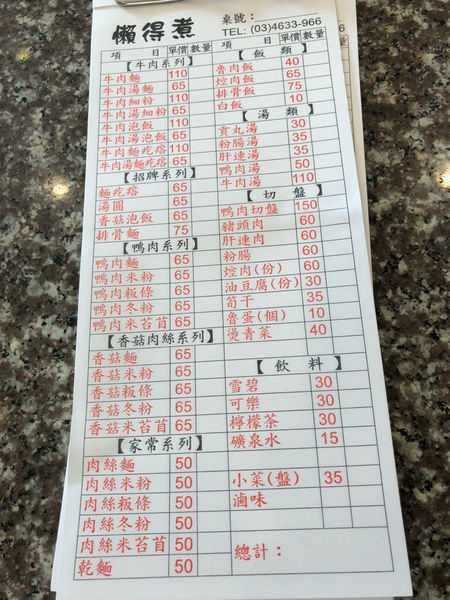 懶得煮
桌號：
TEL: (03)4633-966
項 目 單價 數量
【牛肉系列】
牛肉麵 110
牛肉湯麵 65
牛肉細粉 110
牛肉湯細粉 65
牛肉泡飯 110
牛肉湯泡飯 65
牛肉麵疙瘩 110
牛肉湯麵疙瘩 65
【招牌系列】
麵疙瘩 65
湯圓 65
香菇泡飯 65
排骨麵 75
【鴨肉系列】
鴨肉麵 65
鴨肉米粉 65
鴨肉粄條 65
鴨肉冬粉 65
鴨肉米苔苜 65
【香菇肉絲系列】
香菇麵 65
香菇米粉 65
香菇粄條 65
香菇冬粉 65
香菇米苔苜 65
【家常系列】
肉絲麵 50
肉絲米粉 50
肉絲粄條 50
肉絲冬粉 50
肉絲米苔苜 50
乾麵 50
項 目 單價 數量
【飯類】
魯肉飯 40
焢肉飯 65
排骨飯 75
白飯 10
【湯類】
貢丸湯 30
粉腸湯 35
肝連湯 35
鴨肉湯 50
牛肉湯 110
【切盤】
鴨肉切盤 150
豬頭肉 60
肝連肉 60
粉腸 60
焢肉(份) 60
油豆腐(份) 30
筍干 35
魯蛋(個) 10
燙青菜 40
【飲料】
雪碧 30
可樂 30
檸檬茶 30
礦泉水 15
小菜(盤) 35
滷味
總計：